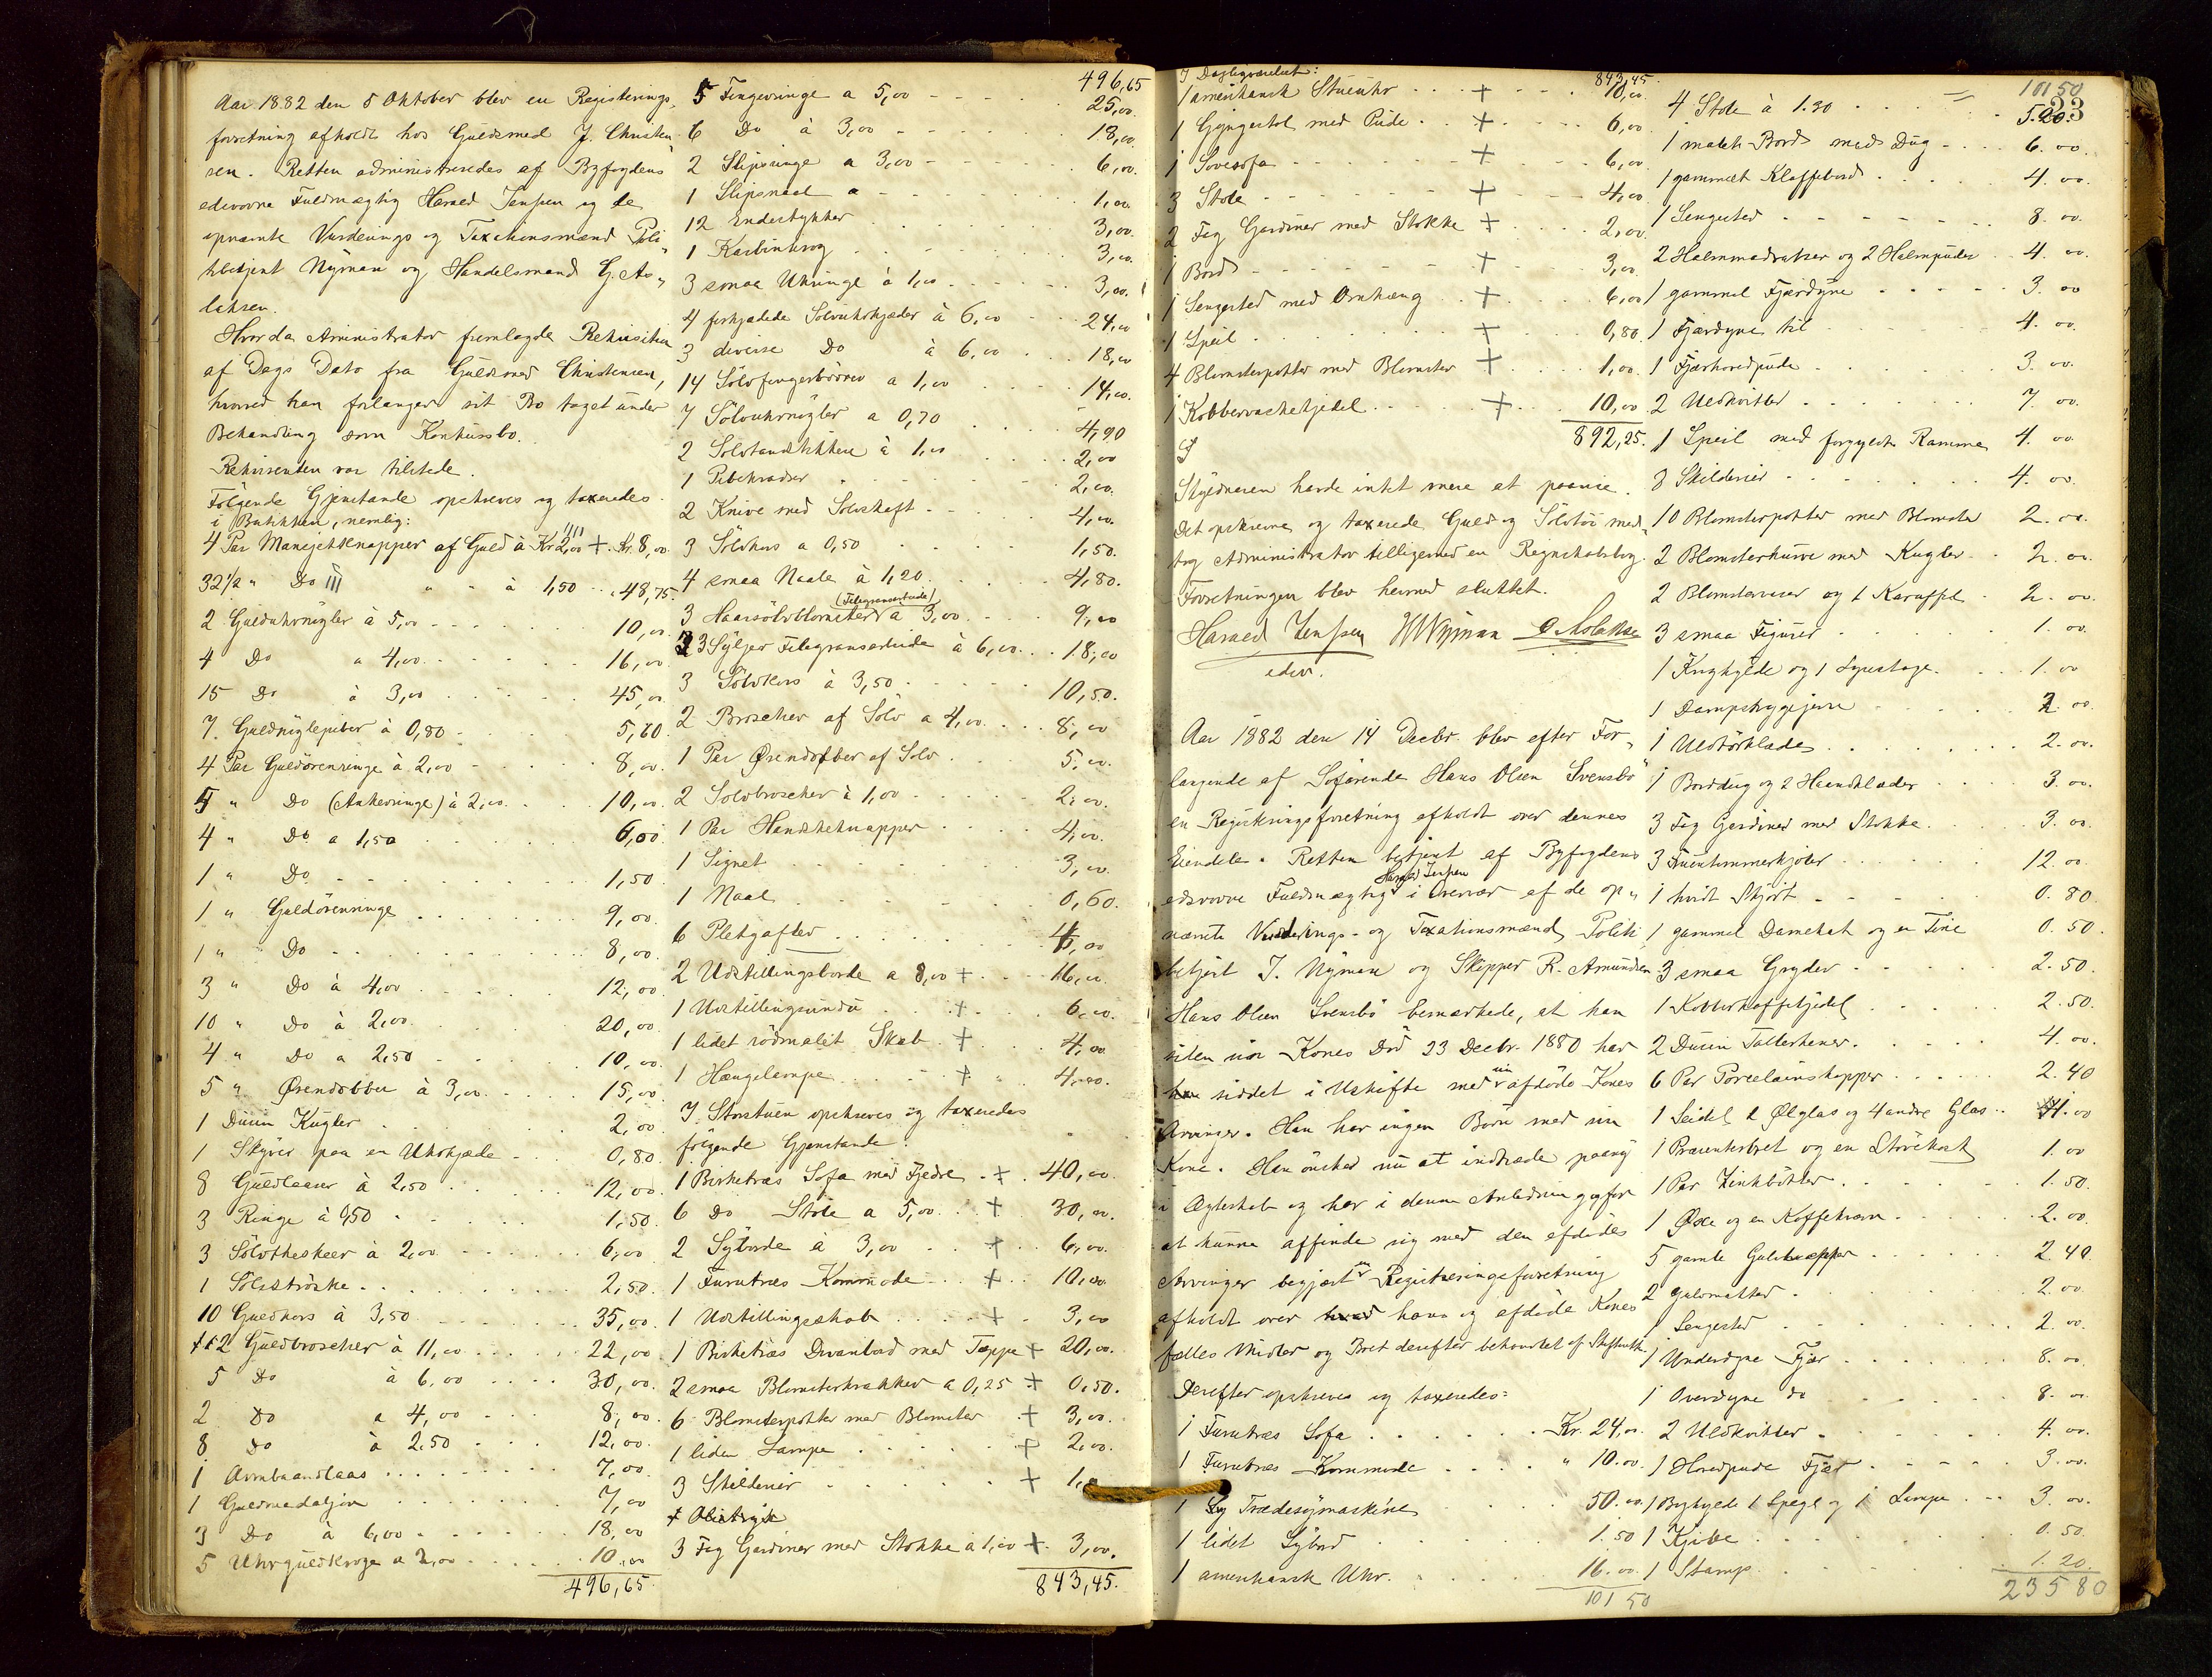 Aar 1882 den 5 Oktober blev en Registerings-
forretning afholdt hos Guldsmed J. Christen-
sen. Retten administreredes af Byfogdens
edsvorne Fuldmægtig Harald Jenssen og de
opnævnte Vurderings og Taxationsmænd Poli-
tibetjent Nyman og Handelsmand G. As-
laksen.
Hvorda Aministrator fremlagde Rekvisition
af Dags Dato fra Guldsmed Christensen,
hvorved han forlanger sit Bo taget under
Behandling som Konkursbo.
Rekvirenten var tilstede.
Følgende Gjenstande opskreves og taxeredes
i Butikken, nemlig:
4 Par Manjetknapper af Guld à Kr 2,00 + Kr. 8,00
32½ " Do à 1,50 48,75
2 Guldurnøgler à 5,00 10,00
4 Do a 4,00 16,00
15 Do à 3,00 45,00
7 Guldnøglepiber à 0,80 5,60
4 Par Guldørenringe à 2,00 8,00
5 " Do (Ankerringe) à 2,00 10,00
4 " Do a 1,50 6,00
1 " Do 1,50
1 " Guldørenringe 9,00
1 " Do 8,00
3 " Do à 4,00 12,00
10 " Do à 2,00 20,00
4 " Do a 2,50 10,00
5 " Ørendobber à 3,00 15,00
1 Dusin Kugler 2,00
1 Skyver paa en Uhrkjæde 0,80
8 Guldlaaser à 2,50 12,00
3 Ringe à 0,50 1,50
3 Sølvtheskeer à 2,00 6,00
1 2,50
10 Guldkors à 3,50 35,00
2 Guldbroscher à 11,00 22,00
5 Do à 6,00 30,00
2 Do a 4,00 8,00
8 Do à 2,50 12,00
1 Armbaandlaas 7,00
1 Guldmedaljon 7,00
3 Do à 6,00 18,00
5 Uhrguldkroge a 2,00 10,00
496,65
496,65
5 Fingerringe a 5,00 25,00
6 Do à 3,00 18,00
2 Slipsringe a 3,00 6,00
1 Slipsnaal a 1,00
12 Endestykker 3,00
1 Karbinkrog 3,00
3 smaa Uhrringe à 1,00 3,00
4 forkjædede Sølvuhrkjæder à 6,00 24,00
3 diverse Do à 6,00 18,00
14 Sølvfingerbørrer a 1,00 14,00
7 Sølvuhrnøgler a 0,70 4,90
2 Sølvtandstikkere à 1,00 2,00
1 Pibekradser 2,00
2 Knive med Sølvskaft 4,00
3 Sølvkors a 0,50 1,50
4 smaa Naale à 1,20 4,80
(Filegransarbeide)
3 Haarsølvblomster a 3,00 9,00
3 Syljer Filegransarbeide à 6,00 18,00
3 Sølvkors à 3,50 10,50
2 Broscher af Sølv a 4,00 8,00
1 Par Ørendobber af Sølv 5,00
2 Sølvbroscher à 1,00 2,00
1 Par Handskeknapper 4,00
1 Signet 3,00
1 Naal 0,60
6 Pletgafler
2 Udstillingsborde a 8,00 + 16,00
1 Udstillingsvindu + 6,00
1 lidet rødmalet Skab + 4,00
1 Hængelampe + 4,00
I Storstuen opskreves og taxeredes
følgende Gjenstande:
1 Birketræs Sofa med Fjedre + 40,00
6 Do Stole a 5,00 + 30,00
2 Syborde à 3,00 + 6,00
1 Furutræs Kommode + 10,00
1 Udstillingsskab + 3,00
1 Birketræs Divanbord med Tæppe + 20,00
2 smaa Blomsterkrakker a 0,25 + 0,50
6 Blomsterpotter med Blomster + 3,00
1 liden Lampe + 2,00
3 Skilderier + 1,
+ Olietryk
3 Fag Gardiner med Stokke a 1,00 + 3,00
843,45
I Dagligværelset: 843,45
1 amerikansk Stueuhr + 10,00
1 Gyngestol med Pude + 6,00
1 Sovesofa + 6,00
3 Stole + 4,00
2 Fag Gardiner med Stokke + 2,00
1 Bord + 3,00
1 Sengested med Omhæng + 6,00
1 Speil + 0,80
4 Blomsterpotter med Blomster + 1,00
1 Kobbervaskekjedel + 10,00
892,25
Skyldneren havde intet mere at paavise.
Det opskrevne og taxerede Guld og Sølvtøi med-
tog Administrator tilligemed en Regnskabsbog.
Forretningen blev hermed sluttet.
Harald Jenssen Nyman G Aslaksen
edsv.
Aar 1882 den 14 Decbr. blev efter For-
langende af Søfarende Hans Olsen Svensbø
en Registringsforretning afholdt over dennes
Eiendele. Retten betjent af Byfogdens
edsvorne Fuldmægtig Harald Jenssen i Overvær af de op-
nævnte Vurderings- og Taxationsmænd, Politi-
betjent J. Nyman og Skipper R. Amundsen
Hans Olsen Svensbø bemærkede, at han
siden sin Kones Død 23 Decbr. 1880 har
siddet i Uskifte med sin afdøde Kones
Arvinger. Han har ingen Børn med sin
Kone. Han ønsked nu at indtræde paany
i Ægteskab og har i denne Anledning for
at kunne affinde sig med den afdødes
Arvinger begjært en Registreringsforretning
afholdt over hans og afdøde Kones
fælles Midler og Boet derefter behandlet af Skifteret.
Derefter opskreves og taxeredes:
1 Furutræs Sofa Kr. 24,00
1 Furutræs Kommode " 10.00
1 Trædesymaskine 50.00
1 lidet Sybord 1.50
1 amerikansk Uhr. 16.00
101 50
101 50
23
4 Stole à 1.30 5.20
1 malet Bord med Dug 6.00
1 gammelt Klaffebord 4.00
1 Sengested 8.00
2 Halmmadratser og 2 Halmpuder 4.00
1 gammel Fjærdyne 3.00
1 Fjærdyne til 4.00
1 Fjærhovedpude 3.00
2 Uldkvitler 7.00
1 Speil med forgyldt Ramme 4.00
3 Skilderier 4.00
10 Blomsterpotter med Blomster 2.00
2 Blomsterkurve med Kugler 2.00
2 Blomstervaser og 1 Karaffel 2.00
3 smaa Figurer 1.00
1 Knaghylde og 1 Lysestage 1.00
1 Dampstrygejern 2.00
1 Uldtørklæde 2.00
1 Borddug og 2 Haandklæder 3.00
3 Fag Gardiner med Stokke 3.00
3 Fruentimmerkjoler 12.00
1 hvidt Skjørt 0.80
1 gammel Damehat og en Tine 0.50
3 smaa Gryder 2.50
1 Kobberkaffekjedel 2.50
2 Dusin Tallerkener 4.00
6 Par Porcelainskopper 2.40
1 Seidel 2 Ølglas og 4 andre Glas 1.00
1 Præsenterbret og en Strækost 1.00
1 Par Zinkbøtter 1.50
1 Øxe og en Kaffekværn 2.00
5 gamle Gulvtæpper 2.40
2 Gulvmatter 2.00
1 Sengested 2.00
1 Underdyne Fjær 8.00
1 Overdyne do 8.00
2 Uldkvitler 4.00
1 Hovedpude Fjær 3.00
1 Boghylde 1 Spegl og 1 Lampe 3.00
1 Kjibe 0.50
1 Stamp 1.20
235 80